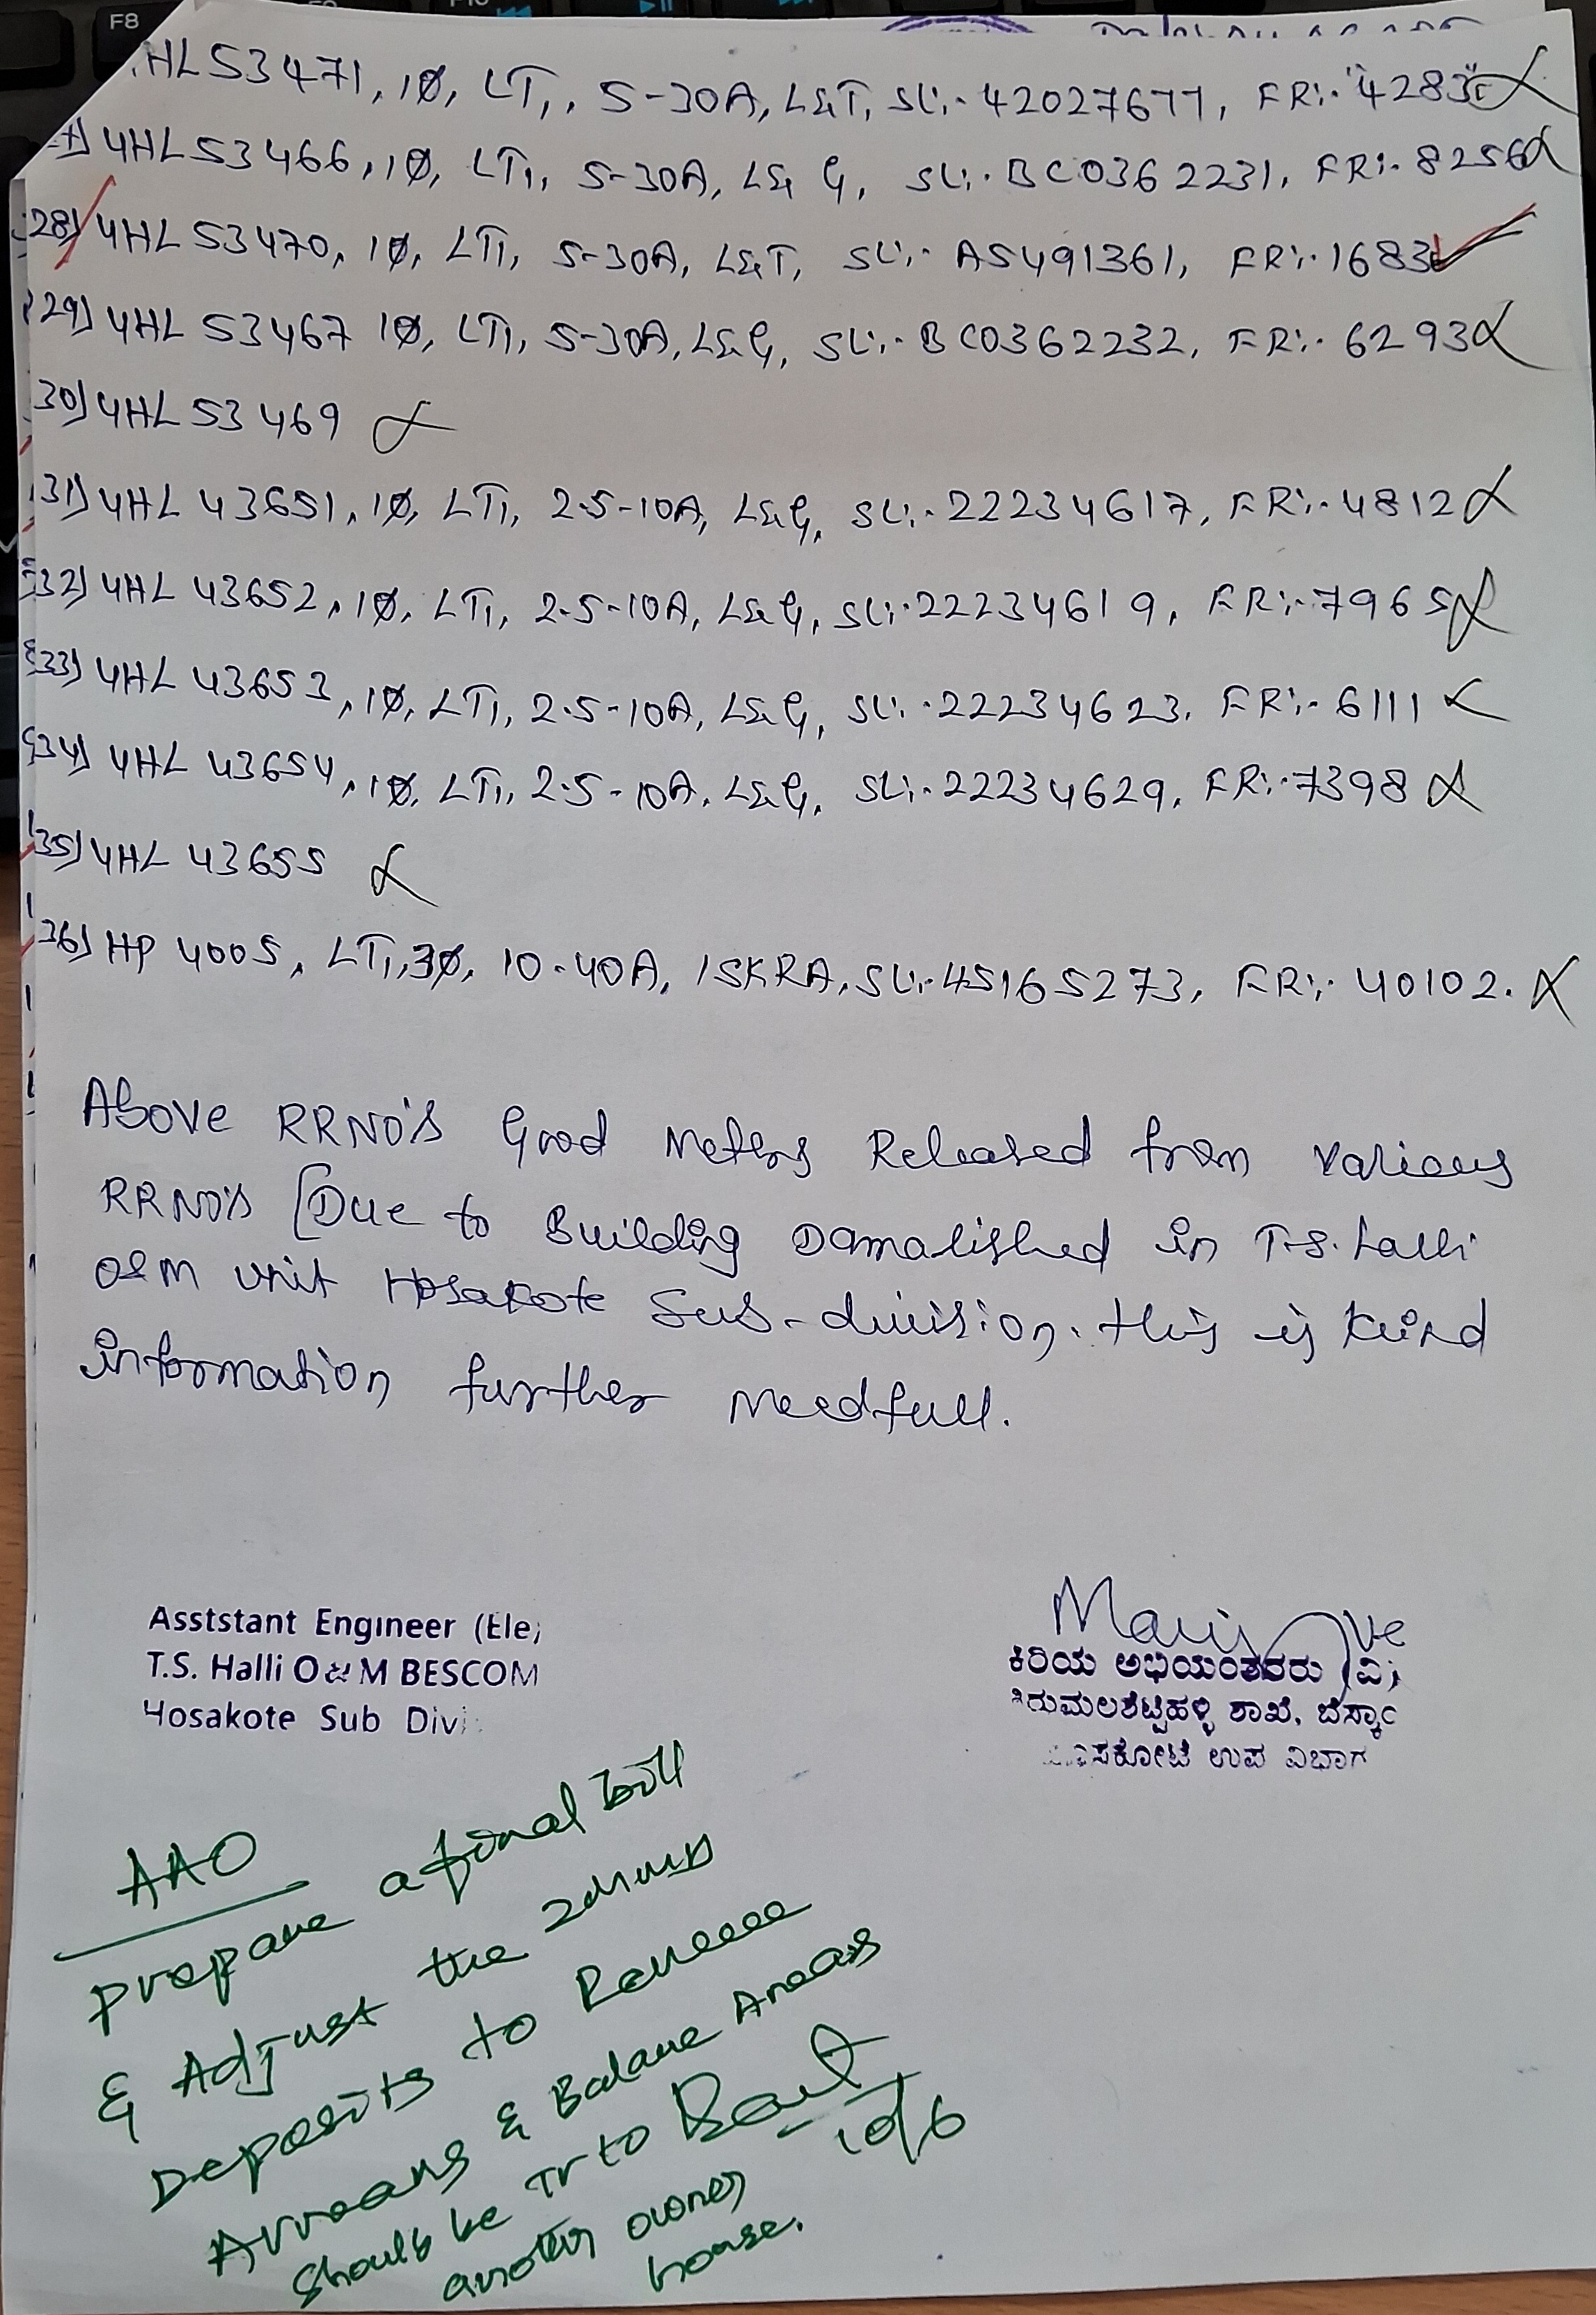 HL53471, 1Ø, LT1, 5-30A, L&T, SL:- 42027677, FR:- 4283
4HL53466, 1Ø, LT1, 5-30A, L&G, SL:- BC0362231, FR:- 8256
28) 4HL 53470, 1Ø, LT1, 5-30A, L&T, SL:- AS491361, FR:- 1683
29) 4HL 53467 1Ø, LT1, 5-30A, L&G, SL:- BC0362232, FR:- 6293
30) 4HL 53469
31) 4HL 43651, 1Ø, LT1, 2.5-10A, L&G, SL:- 22234617, FR:- 4812
32) 4HL 43652, 1Ø, LT1, 2.5-10A, L&G, SL:- 22234619, FR:- 7965
33) 4HL 43653, 1Ø, LT1, 2.5-10A, L&G, SL:- 22234623, FR:- 6111
34) 4HL 43654, 1Ø, LT1, 2.5-10A, L&G, SL:- 22234629, FR:- 7398
35) 4HL 43655
36) HP 4005, LT1, 3Ø, 10-40A, ISKRA, SL:- 45165273, FR:- 40102.
Above RRNO's Good Meters Released from various
RRNO's [Due to Building Damalished in T.S. halli
O&M unit Hosakote Sub-division. this is kind
information further needfull.
Asststant Engineer (Ele)
T.S. Halli O & M BESCOM
Hosakote Sub Divi
ಕಿರಿಯ ಅಭಿಯಂತರರು (ವಿ)
ತಿರುಮಲಶೆಟ್ಟಿಹಳ್ಳಿ ಶಾಖೆ, ಬೆಸ್ಕಾಂ
ಹೊಸಕೋಟೆ ಉಪ ವಿಭಾಗ
AAO
prepare a final bill
& Adjust the
Deposits to
Arrears & Balane Arears
should be Tr to
another owner
house.
F8